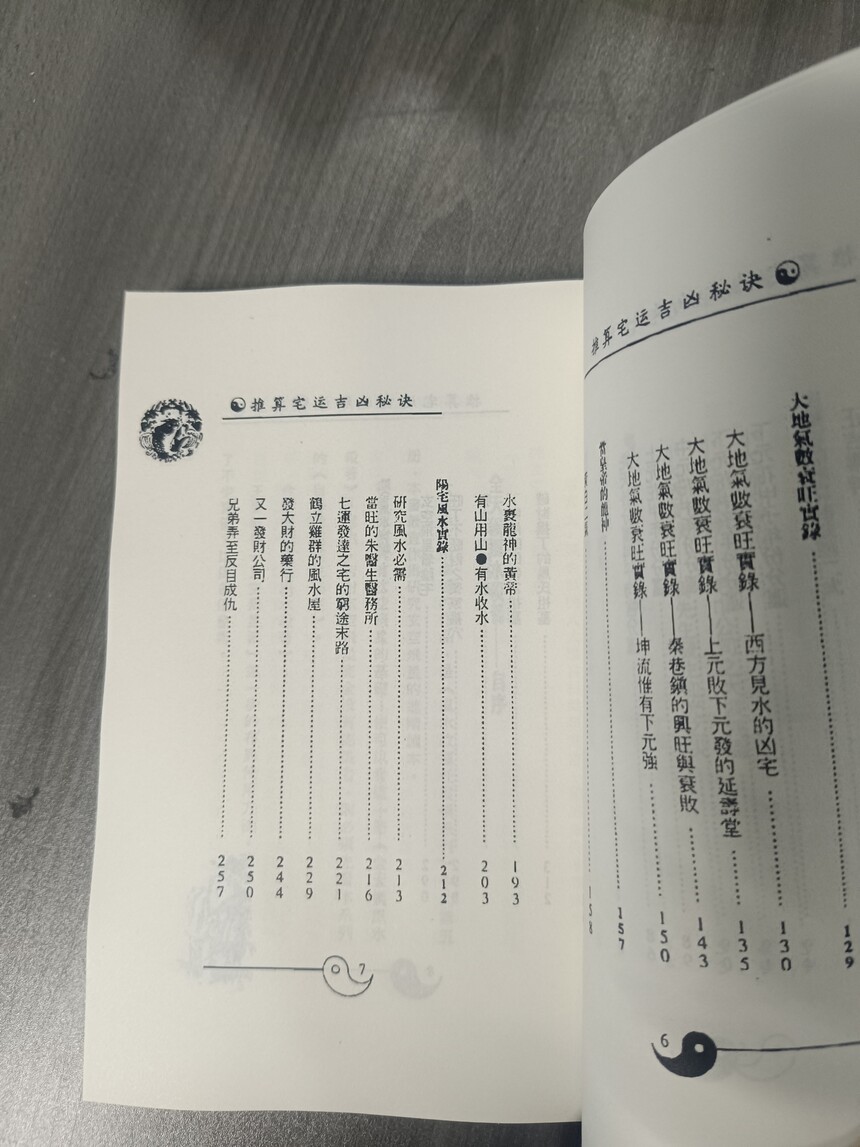 推算宅運吉凶秘诀
大地氣數衰旺實錄 129
大地氣數衰旺實錄——西方見水的凶宅 130
大地氣數衰旺實錄——上元敗下元發的延壽堂 135
大地氣數衰旺實錄 143
巷鎮的興旺與衰敗
大地氣數衰旺實錄——坤流惟有下元強 150
當皇帝的龍神 157
158
6
推算宅運吉凶秘诀
水裹龍神的黄帝 193
有山用山●有水收水 203
陽宅風水實錄 212
研究風水必需 213
當旺的朱醫生醫務所 216
七運發達之宅的窮途末路 221
鶴立雞群的風水屋 229
發大財的藥行 244
又一發財公司 250
兄弟弄至反目成仇 257
7